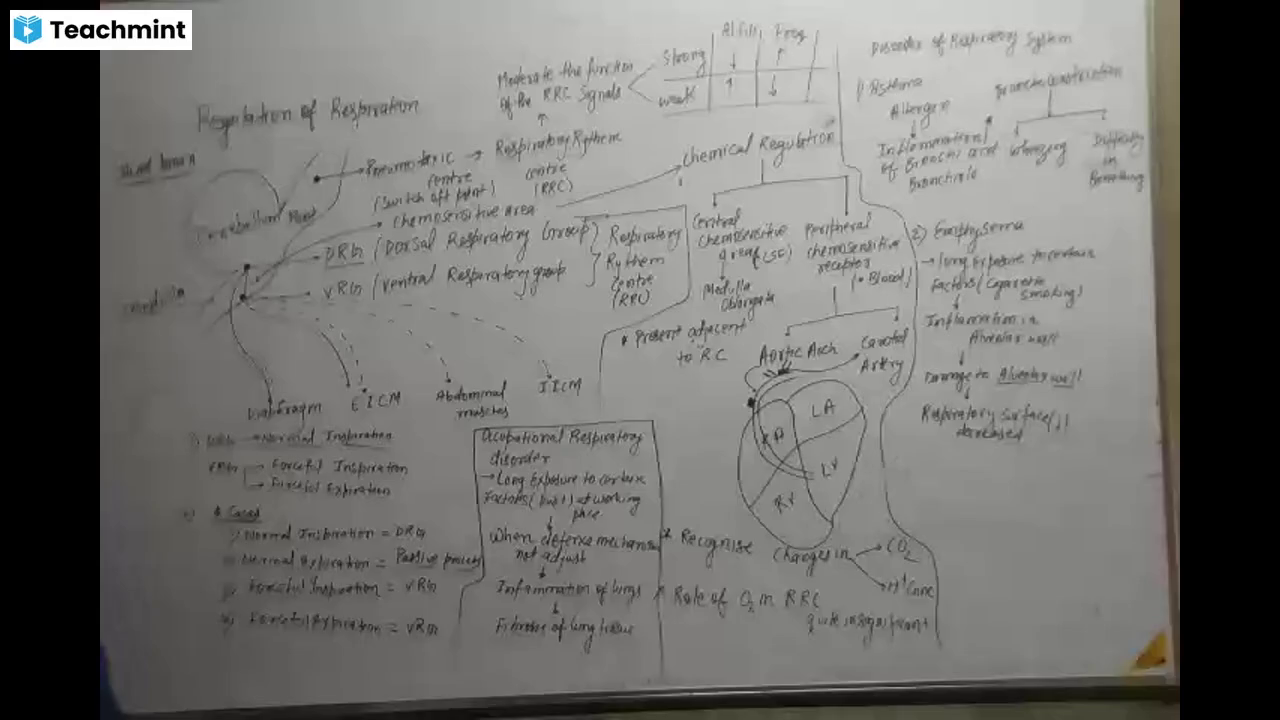 Teachmint
Regulation of Respiration
Hind brain
Cerebellum
Pneumotaxic
centre
(Switch off point)
→ Respiratory Rythem
centre
(RRC)
Moderate the function
of the RRC Signals
Strong
weak
↓ ↑
↑ ↓
Chemosensitive area
DRG (Dorsal Respiratory Group)
VRG (Ventral Respiratory group
Respiratory
Rythem
Centre
(RRC)
Diaphragm
EICM
Abdominal
muscles
IICM
→ Normal Inspiration
VRG → Forceful Inspiration
→ Forceful Expiration
4 Cases
Normal Inspiration = DRG
Normal Expiration = Passive process
Forceful Inspiration = VRG
Forceful Expiration = VRG
Occupational Respiratory
disorder
→ Long Exposure to certain
Factors (Dust) at working
place
↓
When defense mechanism
not adjust
↓
Inflammation of lungs
↓
Fibrosis of lung tissue
Chemical Regulation
Central
Chemosensitive
area
Medulla
Oblongata
* Present adjacent
to RC
Peripheral
chemosensitive
receptor
(* Blood)
Aortic Arch
Carotid
Artery
RA
LA
LV
RV
* Recognise Changes in → CO2
→ H+ Conc
* Role of O2 in RRC
quite insignificant
Disorder of Respiratory System
1) Asthma
Allergen
↓
Inflammation
of Bronchi and
Bronchiole
Bronchoconstriction
Wheezing
Difficulty
in
Breathing
2) Emphysema
→ Long Exposure to certain
Factors (Cigarette
smoking)
↓
Inflammation in
Alveolar wall
↓
Damage to Alveolar wall
↓
Respiratory surface
decreased